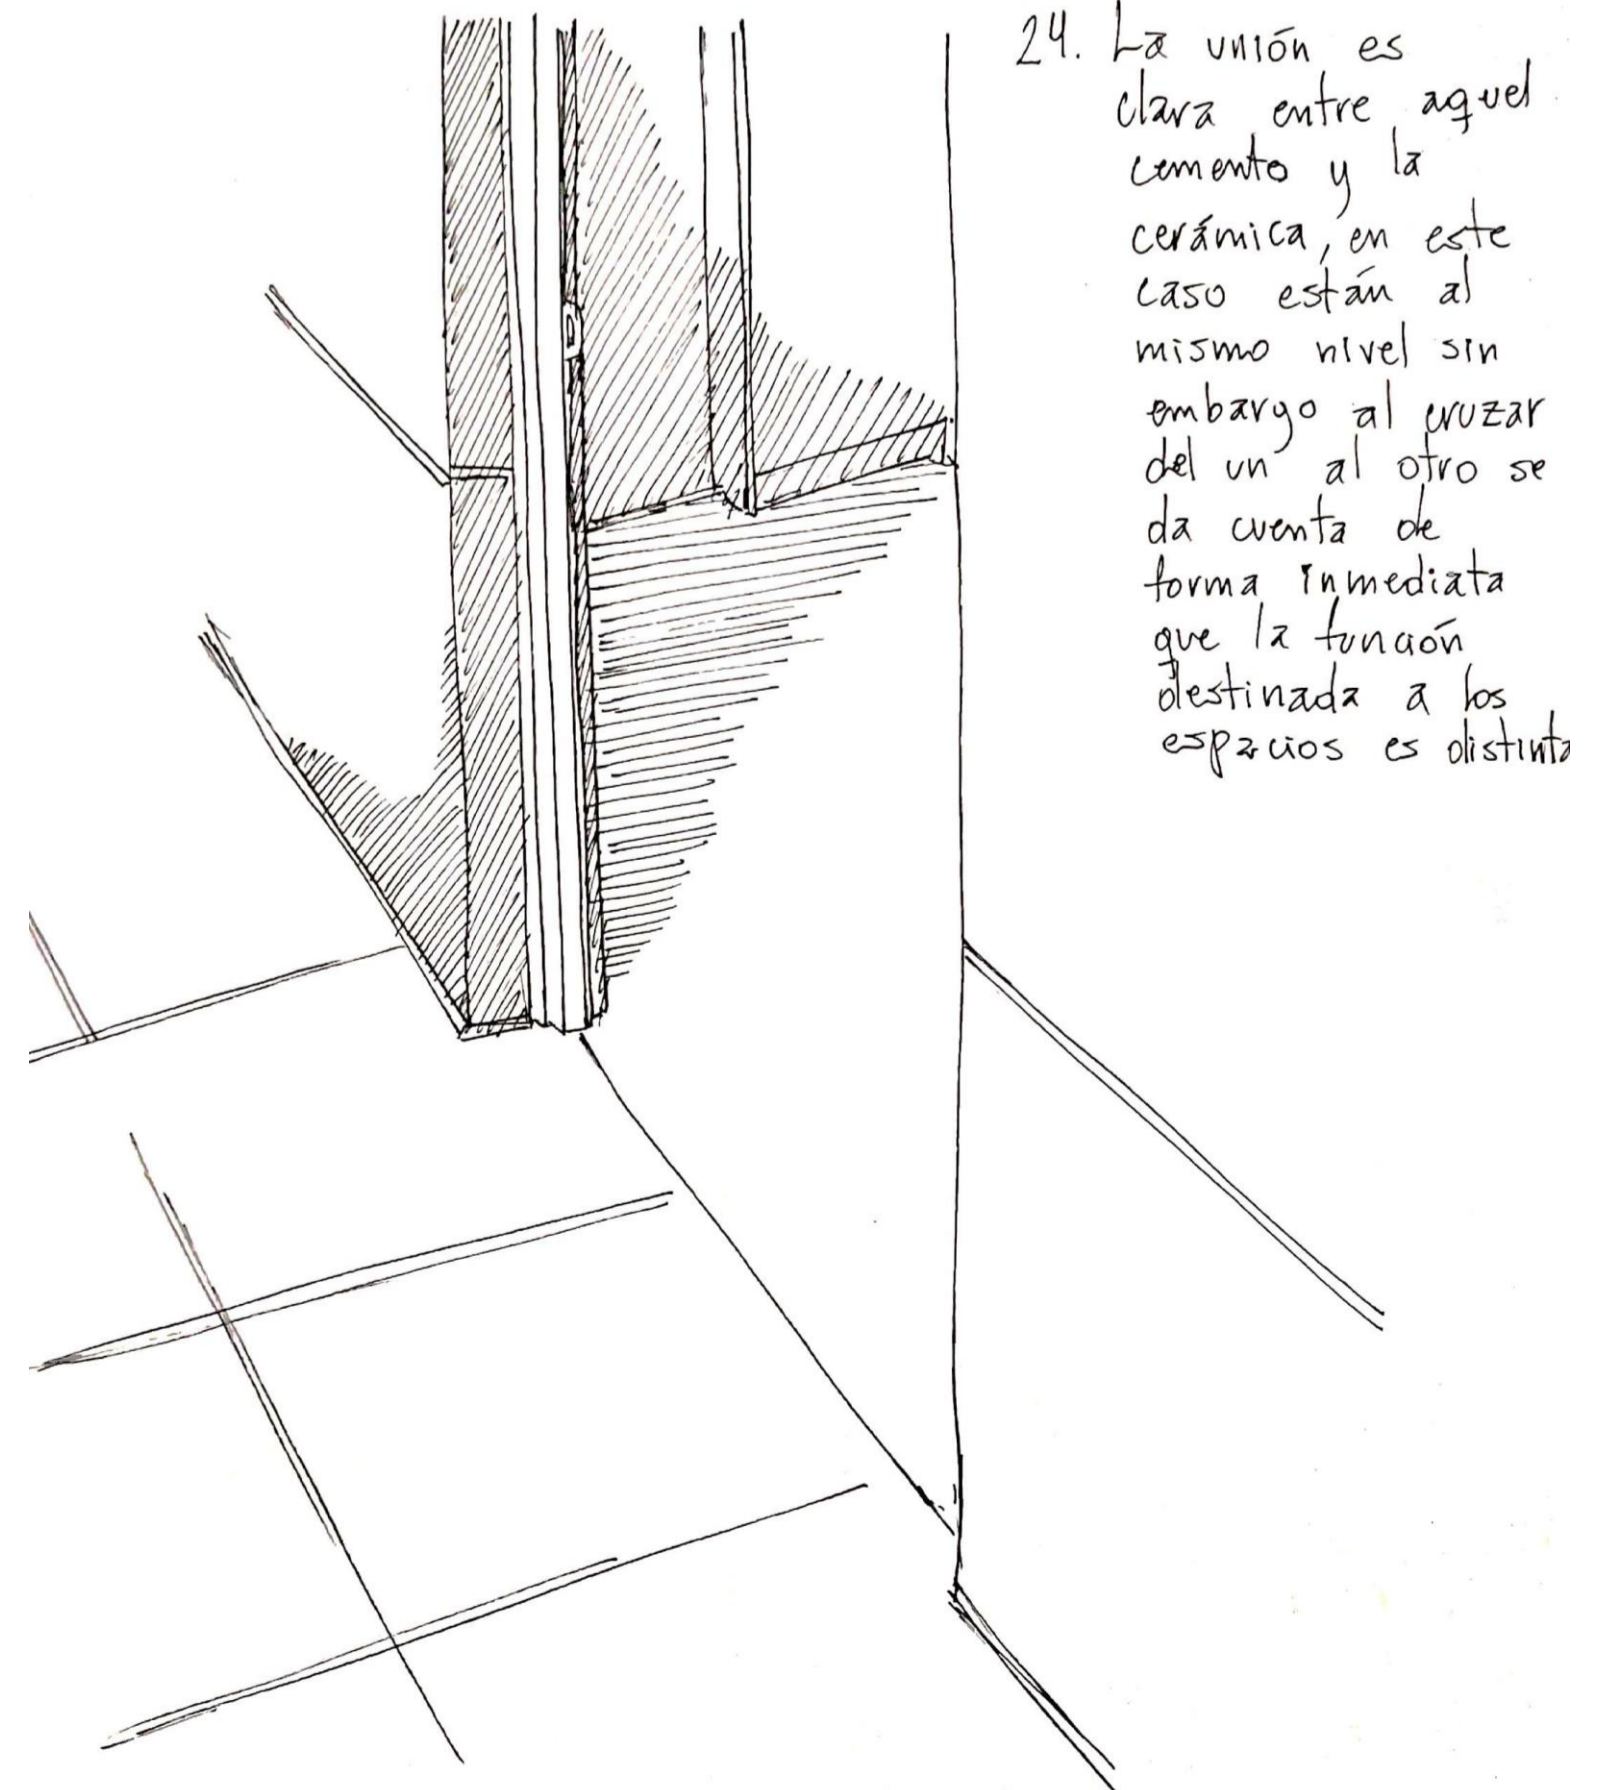 24. La unión es
clara entre aquel
cemento y la
cerámica, en este
caso están al
mismo nivel sin
embargo al cruzar
del un al otro se
da cuenta de
forma inmediata
que la función
destinada a los
espacios es distinta